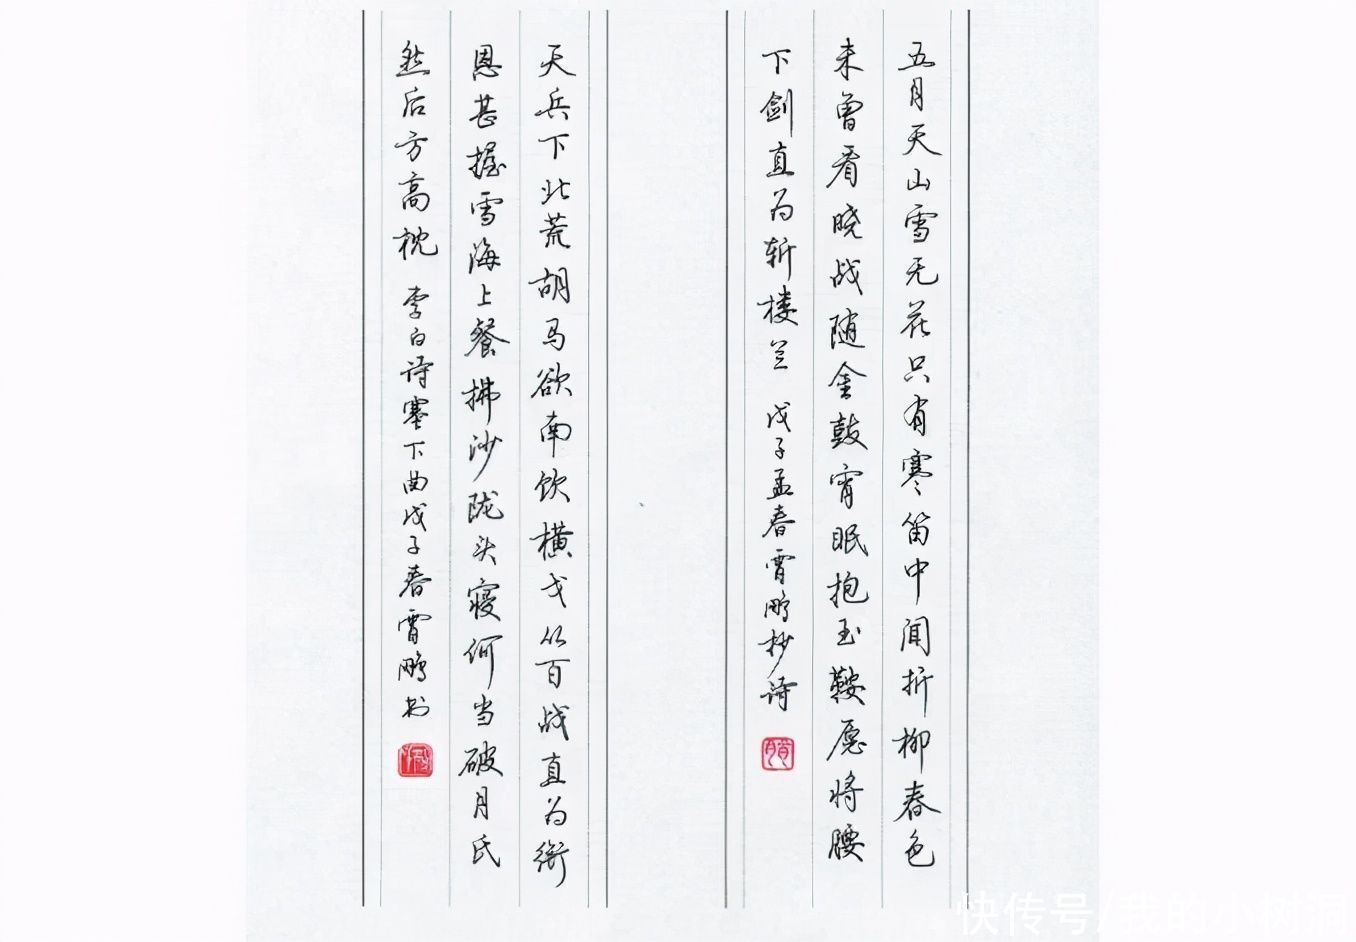 五月天山雪无花只有寒笛中闻折柳春色
未曾看晓战随金鼓宵眠抱玉鞍愿将腰
下剑直为斩楼兰 戊子孟春霄鹏抄诗
天兵下北荒胡马欲南饮横戈从百战直为衔
恩甚握雪海上餐拂沙陇头寝何当破月氏
然后方高枕 李白诗塞下曲戊子春霄鹏书
快传号/我的小树洞